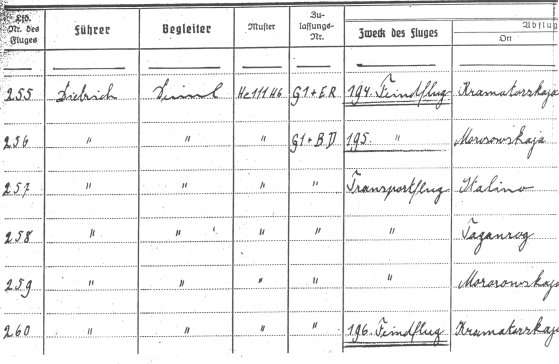 Lfd. Nr. des Fluges Führer Begleiter Muster Zu- lassungs- Nr. Zweck des Fluges Abflug Ort
255 Dietrich He 111 H6 G1+ER 194. Feindflug Kramatorskaja
256 " " " G1+BD 195. " Morosowskaja
257 " " " " Transportflug Stalino
258 " " " " " Taganrog
259 " " " " " Morosowskaja
260 " " " " 196. Feindflug Kramatorskaja